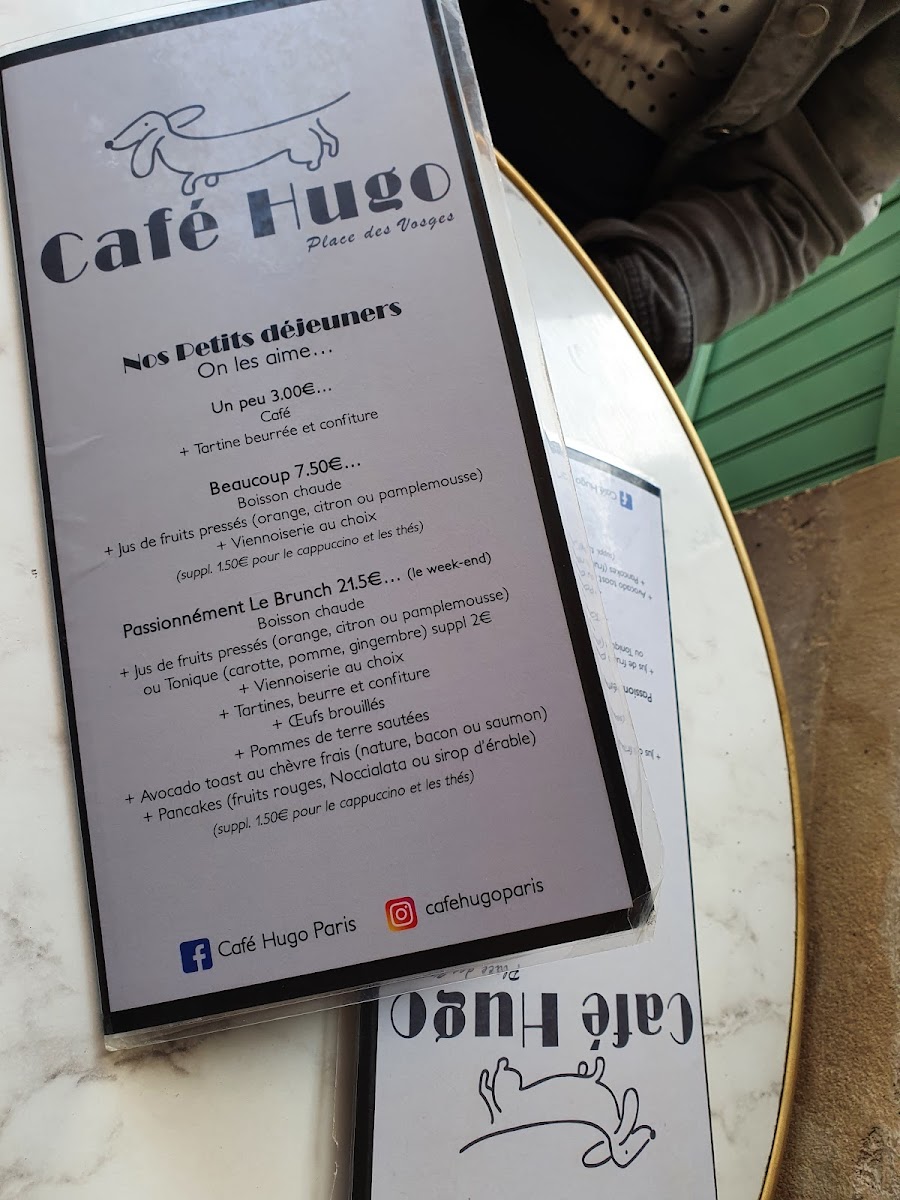 Café Hugo
Place des Vosges
Nos Petits déjeuners
On les aime...
Un peu 3.00€...
Café
+ Tartine beurrée et confiture
Beaucoup 7.50€...
Boisson chaude
+ Jus de fruits pressés (orange, citron ou pamplemousse)
+ Viennoiserie au choix
(suppl. 1.50€ pour le cappuccino et les thés)
Passionnément Le Brunch 21.5€... (le week-end)
Boisson chaude
+ Jus de fruits pressés (orange, citron ou pamplemousse)
ou Tonique (carotte, pomme, gingembre) suppl 2€
+ Viennoiserie au choix
+ Tartines, beurre et confiture
+ Œufs brouillés
+ Pommes de terre sautées
+ Avocado toast au chèvre frais (nature, bacon ou saumon)
+ Pancakes (fruits rouges, Noccialata ou sirop d'érable)
(suppl. 1.50€ pour le cappuccino et les thés)
Café Hugo Paris
cafehugoparis
Café Hugo
Place
+ Jus
Passion
+ Jus de fru
ou Toniq
+ Avocado toast
+ Pancakes (fru
Café Hugo